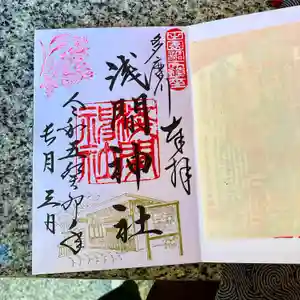 奉拝
多摩川
浅間神社
令和五癸卯年
長月三日
浅間神社